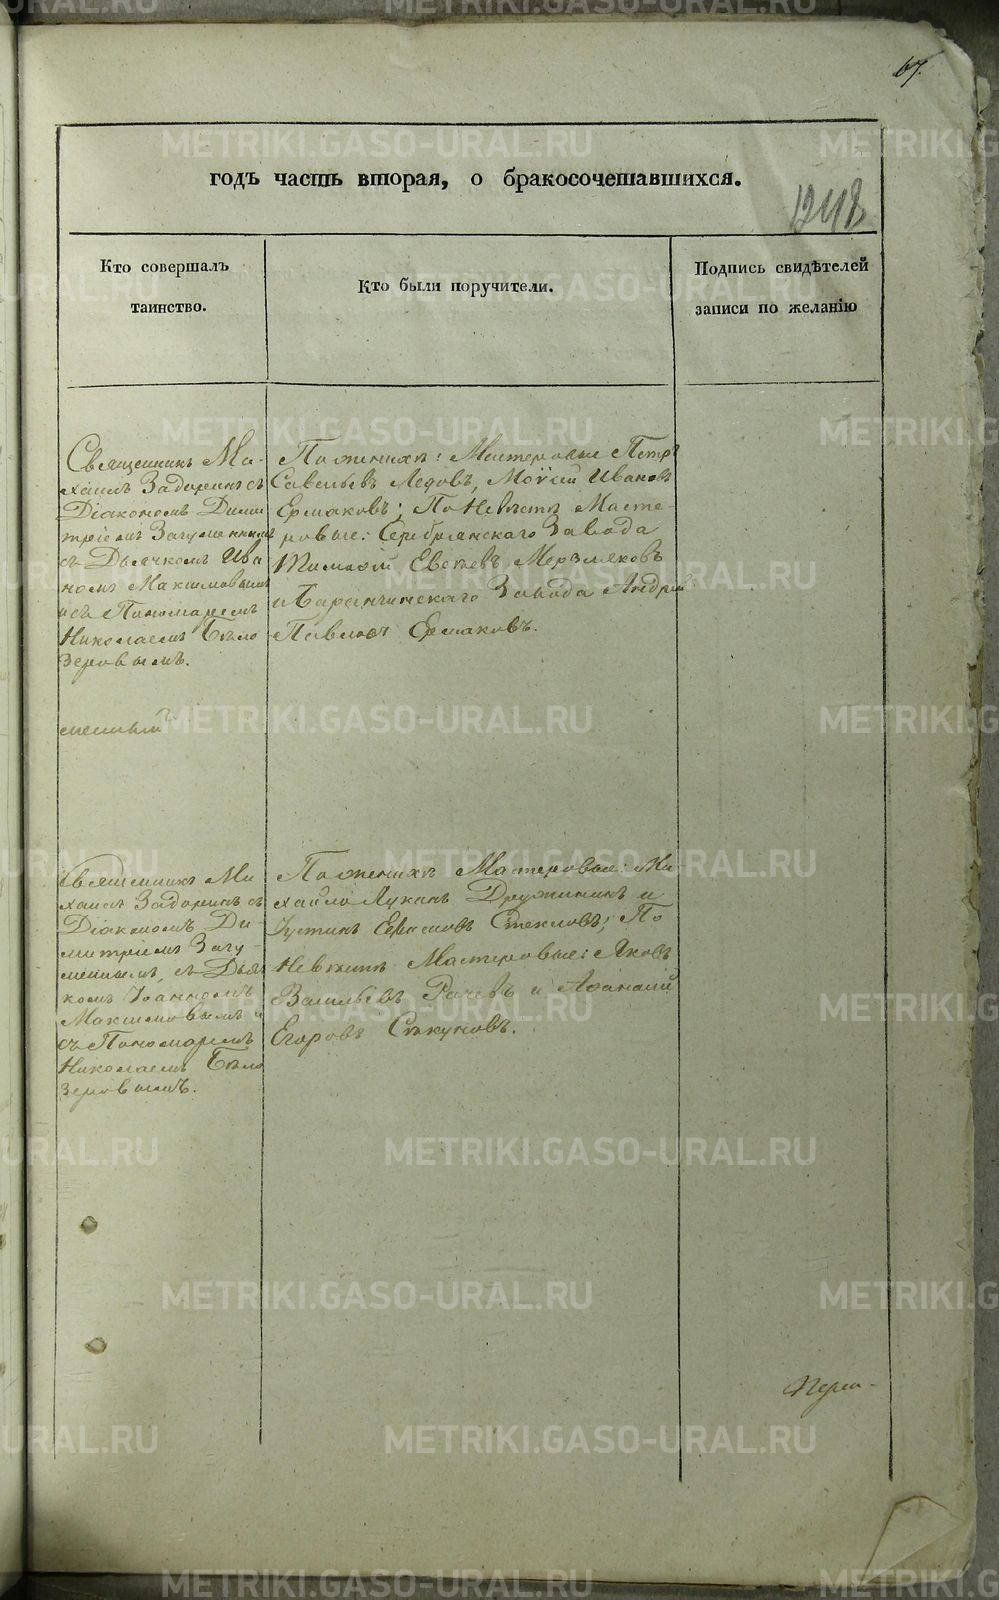 67.
годъ часть вторая, о бракосочетавшихся.
1248
Кто совершалъ
таинство.
Кто были поручители.
Подпись свидѣтелей
записи по желанію
Священникъ Ми-
хаилъ Задоринъ съ
Діакономъ Дими
тріемъ Загуменнымъ
съ Дьячкомъ Ива
номъ Максимовымъ
и съ Пономаремъ
Николаемъ Бѣло
зеровымъ.
По женихѣ: Мастеровые Петръ
Савельевъ Ледовъ, Моѵсей Ивановъ
Ермаковъ; По Невѣстѣ Масте-
ровые: Серебрянскаго Завода
Тимофей Евсѣевъ Мерзляковъ
и Баранчинскаго Завода Андрей
Павловъ Ермаковъ.
Священникъ Ми
хаилъ Задоринъ съ
Діакономъ Ди-
митріемъ Загу-
меннымъ, съ Дьяч
комъ Іоанномъ
Максимовымъ и
съ Пономаремъ
Николаемъ Бѣло
зеровымъ.
По женихѣ Мастеровые: Ми-
хайло Лукинъ Дружининъ и
Іустинъ Стекловъ; По
Невѣстѣ Мастеровые: Яковъ
Васильевъ Рачевъ и Аѳанасій
Егоровъ Сѣкуновъ.
METRIKI.GASO-URAL.RU